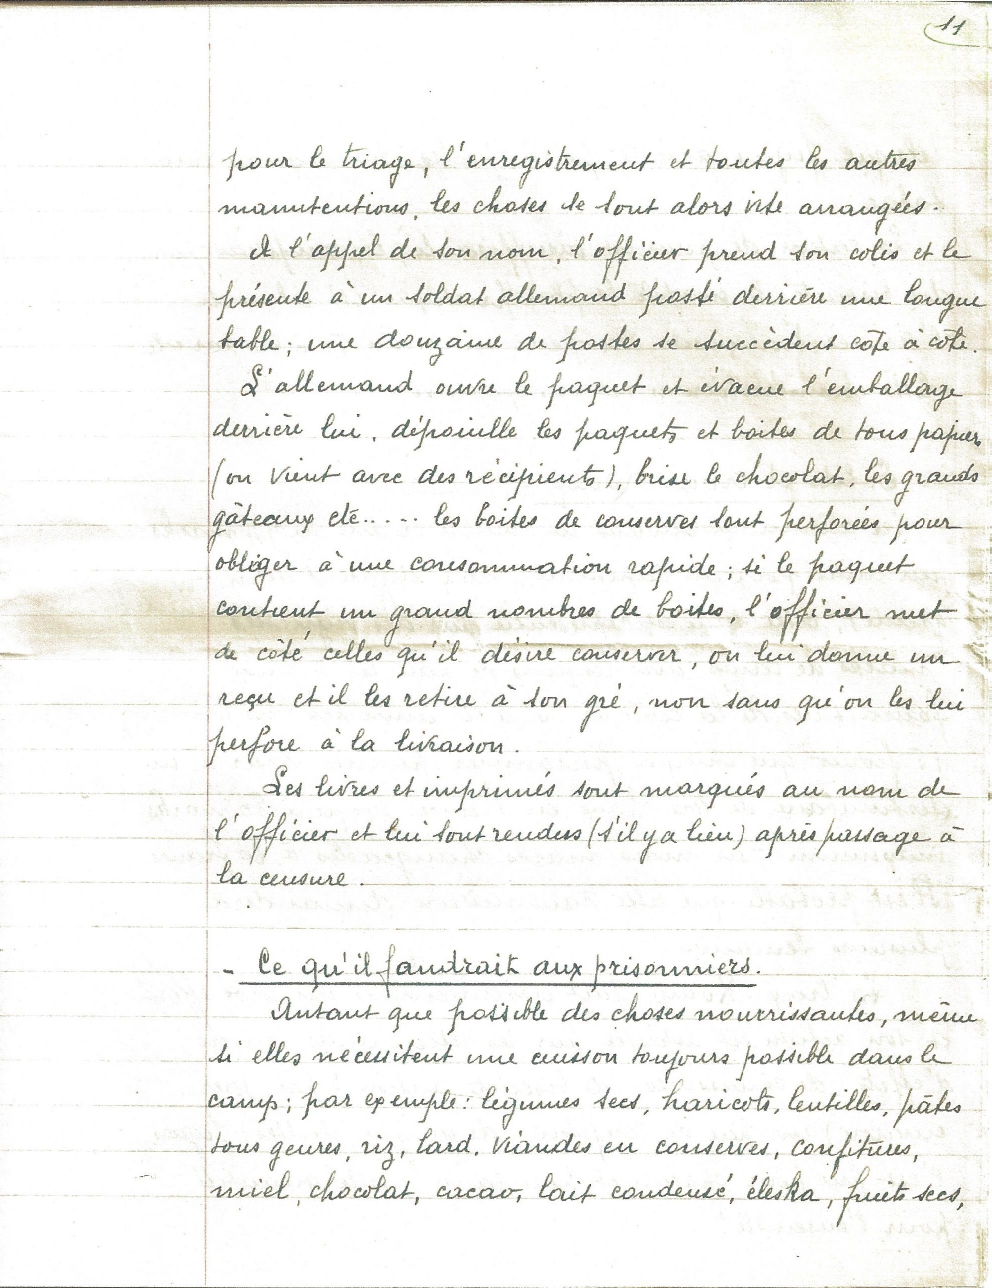 11
pour le triage, l'enregistrement et toutes les autres
manutentions, les choses se sont alors vite arrangées.
A l'appel de son nom, l'officier prend son colis et le
présente à un soldat allemand posté derrière une longue
table ; une douzaine de postes se succèdent côte à côte.
L'allemand ouvre le paquet et évacue l'emballage
derrière lui, dépouille les paquets et boites de tous papiers
(on vient avec des récipients), brise le chocolat, les grands
gâteaux etc..... les boites de conserves sont perforées pour
obliger à une consommation rapide ; si le paquet
contient un grand nombres de boites, l'officier met
de côté celles qu'il désire conserver, on lui donne un
reçu et il les retire à son gré, non sans qu'on les lui
perfore à la livraison.
Les livres et imprimés sont marqués au nom de
l'officier et lui sont rendus (s'il y a lieu) après passage à
la censure.
- Ce qu'il faudrait aux prisonniers.
Autant que possible des choses nourrissantes, même
si elles nécessitent une cuisson toujours possible dans le
camp ; par exemple : légumes secs, haricots, lentilles, pâtes
tous genres, riz, lard, viandes en conserves, confitures,
miel, chocolat, cacao, lait condensé, éleska, fruits secs,